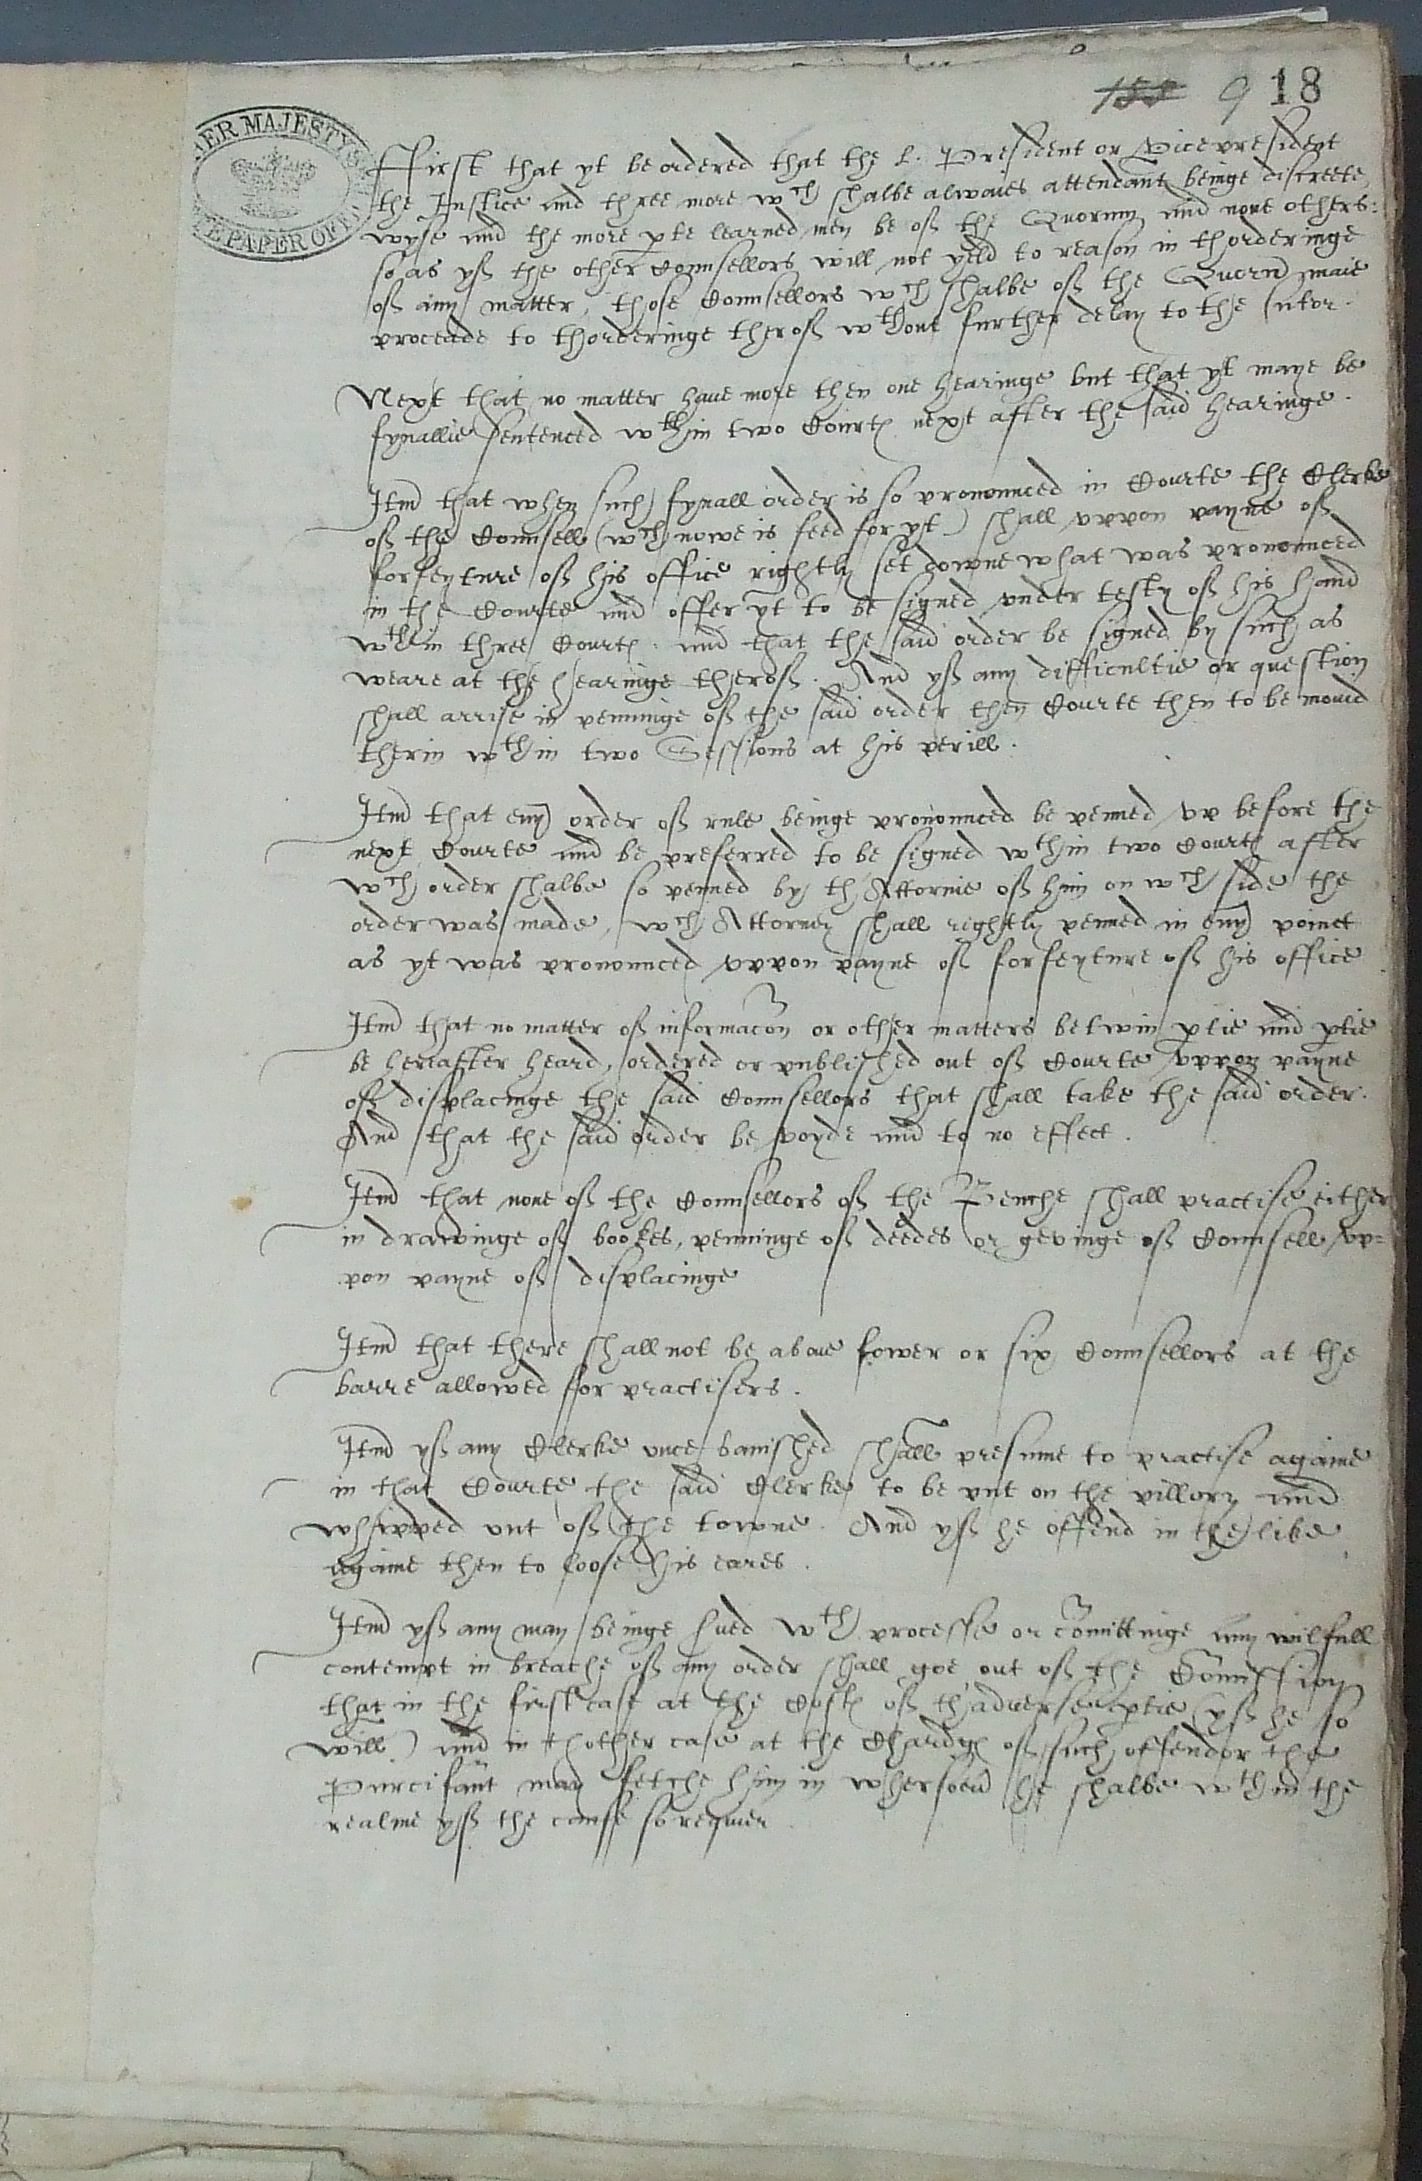 155 9 18
HER MAJESTY'S
E PAPER OFF
First that yt be ordered that the L. President or Vicepresident
the Justice and three more wch shalbe alwaies attendant beinge discreete,
wyse and the more pte learned men be of the Quorum and none others:
so as yf the other Counsellors will not yeld to reason in thorderinge
of any matter, those Counsellors wch shalbe of the Quorum maie
proceade to thorderinge therof wthout further delay to the sutor.
Next that no matter have more then one hearinge but that yt maye be
fynallie sentenced wthin two Courtes next after the said hearinge.
Itm that when such fynall order is so pronounced in Courte the Clerke
of the Counsell (wch nowe is feed for yt) shall vppon payne of
forfeyture of his office rightly set downe what was pronounced
in the Courte and offer yt to be signed vnder testy of his hand
wthin three Courtes. and that the said order be signed by such as
weare at the hearinge therof. And yf any difficultie or question
shall arrise in penninge of the said order then Courte then to be movid
therin wthin two Sessions at his perill.
Itm that euy order of rule beinge pronounced be penned vp before the
next Courte and be preferred to be signed wthin two Courtes after
wch order shalbe so penned by th Attornie of him on wch side the
order was made, wch Attorney shall rightly penned in euy poinct
as yt was pronounced vppon payne of forfeyture of his office
Itm that no matter of informacon or other matters betwin ptie and ptie
be hereafter heard, ordered or published out of Courte vppon payne
of displacinge the said Counsellors that shall take the said order.
And that the said order be voyde and to no effect.
Itm that none of the Counsellors of the Benche shall practise either
in drawinge of bookes, penninge of deedes or gevinge of Counsell vp=
pon payne of displacinge
Itm that there shall not be aboue fower or six Counsellors at the
barre allowed for practisers.
Itm yf any Clerke once banished shall presume to practise againe
in that Courte the said Clerke to be put on the pillory and
whipped out of the towne. And yf he offend in the like
againe then to loose his eares.
Itm yf any man beinge sued wth processe or comittinge any wilfull
contempt in breache of any order shall goe out of the Comission
that in the first case at the Costes of thaduerse ptie (yf he so
will) and in thother case at the Chardges of such offendor the
Purcifant may fetche him in whersoeu he shalbe wthin the
realme yf the cause so requier